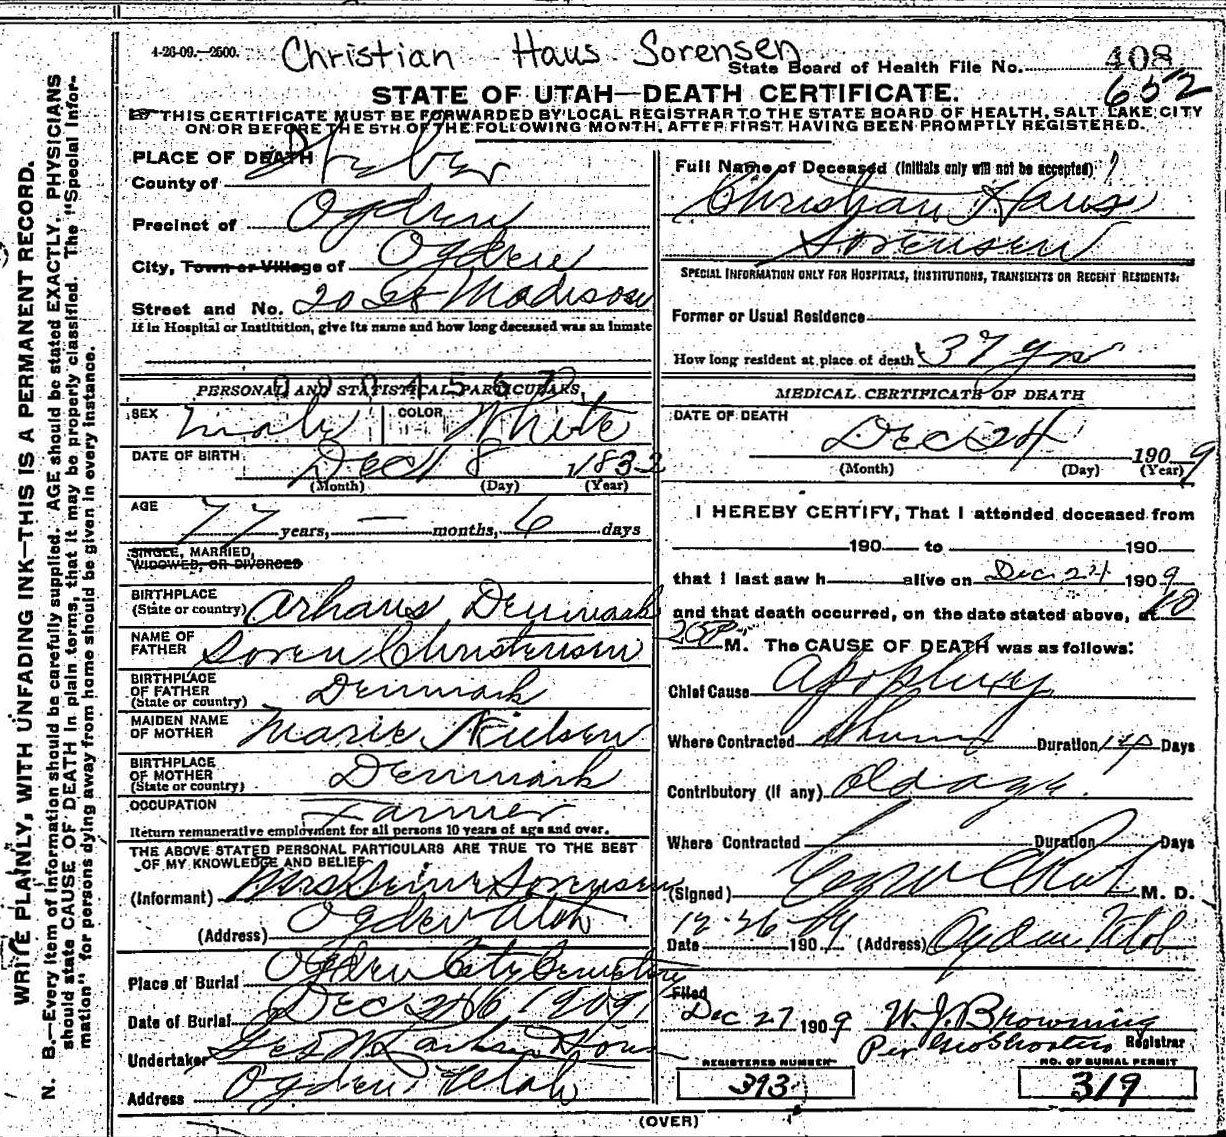 4-26-09.—2500. Christian Haus Sorensen
State Board of Health File No. 408
652
STATE OF UTAH—DEATH CERTIFICATE.
THIS CERTIFICATE MUST BE FORWARDED BY LOCAL REGISTRAR TO THE STATE BOARD OF HEALTH, SALT LAKE CITY
ON OR BEFORE THE 5TH OF THE FOLLOWING MONTH, AFTER FIRST HAVING BEEN PROMPTLY REGISTERED.
PLACE OF DEATH
County of Weber
Precinct of Ogden
City, Town or Village of Ogden
Street and No. Madison
If in Hospital or Institution, give its name and how long deceased was an inmate
PERSONAL AND STATISTICAL PARTICULARS
SEX Male COLOR White
DATE OF BIRTH Dec 18 183
(Month) (Day) (Year)
AGE 77 years, — months, 6 days
SINGLE, MARRIED,
WIDOWED, OR DIVORCED
BIRTHPLACE
(State or country) Arhaus Denmark
NAME OF
FATHER Soren Christensen
BIRTHPLACE
OF FATHER
(State or country) Denmark
MAIDEN NAME
OF MOTHER Marie Nielsen
BIRTHPLACE
OF MOTHER
(State or country) Denmark
OCCUPATION Farmer
Return remunerative employment for all persons 10 years of age and over.
THE ABOVE STATED PERSONAL PARTICULARS ARE TRUE TO THE BEST
OF MY KNOWLEDGE AND BELIEF
(Informant) Mrs Sorensen
(Address) Ogden Utah
Place of Burial Ogden City Cemetery
Date of Burial Dec 26 1909
Undertaker
Address Ogden, Utah
Full Name of Deceased (Initials only will not be accepted)
Christian Haus
Sorensen
SPECIAL INFORMATION ONLY FOR HOSPITALS, INSTITUTIONS, TRANSIENTS OR RECENT RESIDENTS:
Former or Usual Residence
How long resident at place of death 37 yrs
MEDICAL CERTIFICATE OF DEATH
DATE OF DEATH
Dec 24 1909
(Month) (Day) (Year)
I HEREBY CERTIFY, That I attended deceased from
190 to 190
that I last saw h alive on Dec 24 1909
and that death occurred, on the date stated above, at
M. The CAUSE OF DEATH was as follows:
Chief Cause Apoplexy
Where Contracted Duration Days
Contributory (if any) Old age.
Where Contracted Duration Days
(Signed) M. D.
Date 12-26 190 (Address) Ogden Utah
Filed
Dec 27 1909 W. J. Browning
Per Registrar
REGISTERED NUMBER NO. OF BURIAL PERMIT
393 319
(OVER)
WRITE PLAINLY, WITH UNFADING INK—THIS IS A PERMANENT RECORD.
N. B.—Every item of information should be carefully supplied. AGE should be stated EXACTLY. PHYSICIANS
should state CAUSE OF DEATH in plain terms, that it may be properly classified. The "Special Infor-
mation" for persons dying away from home should be given in every instance.